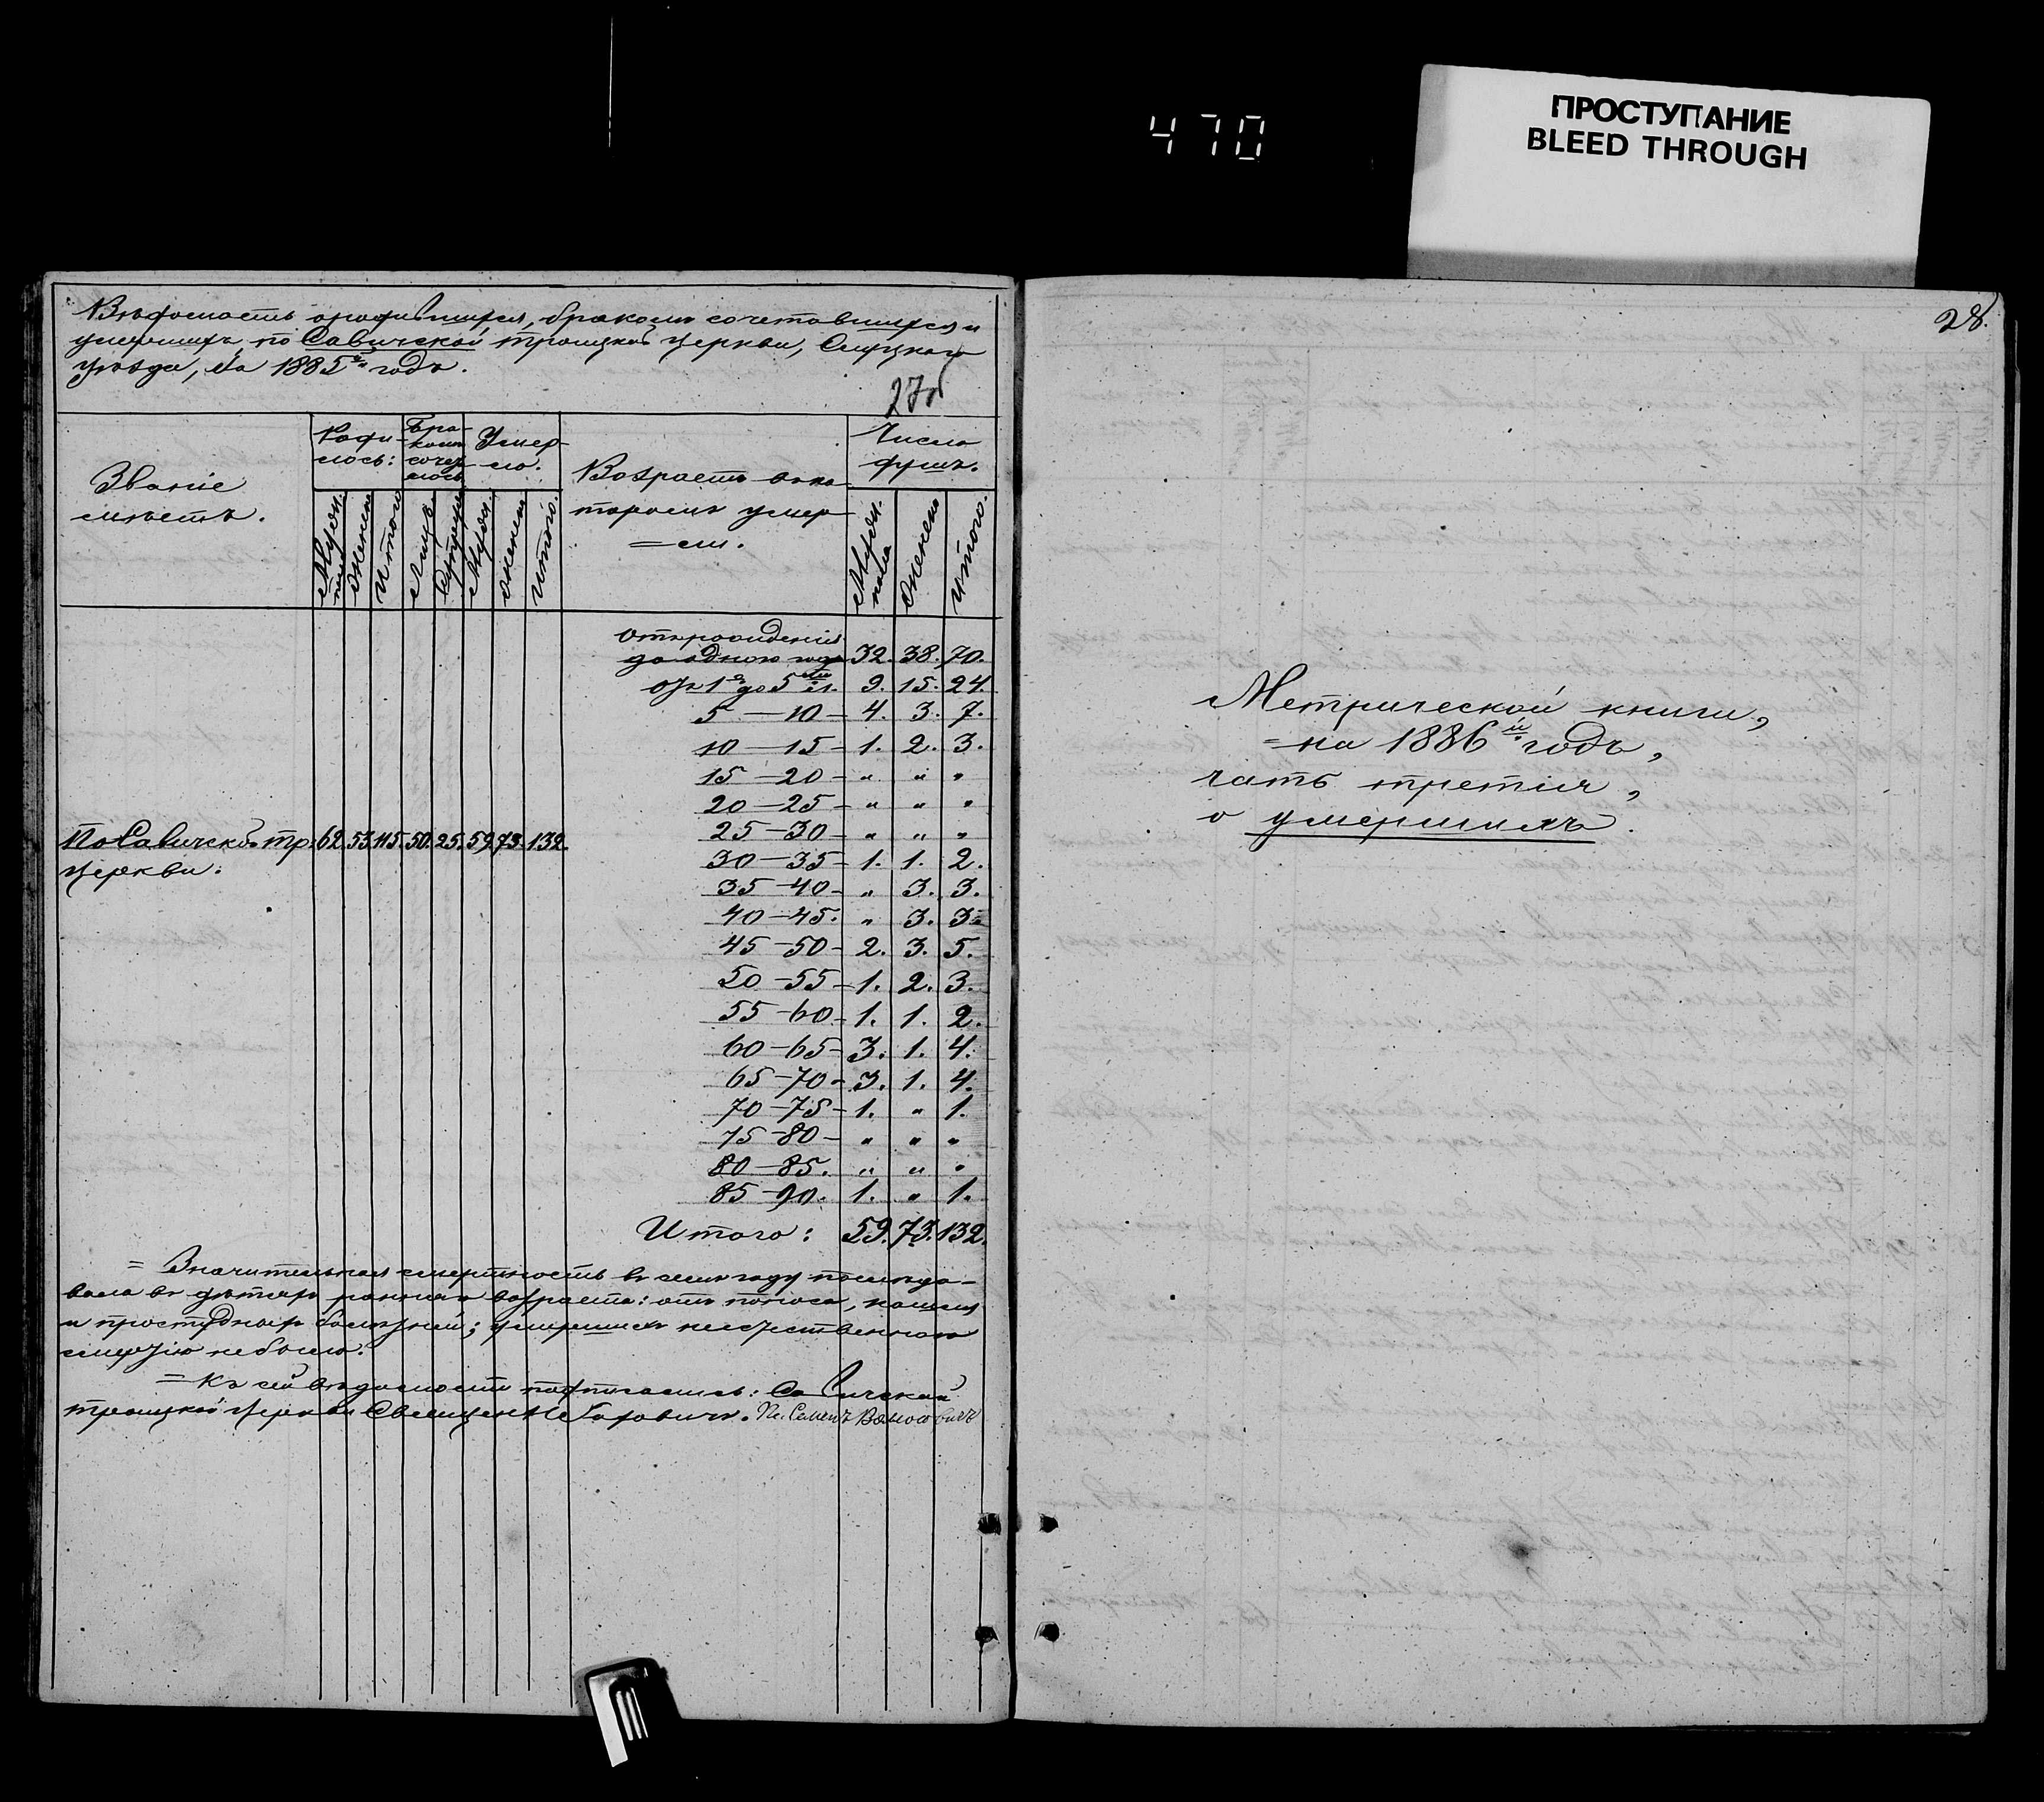 470
ПРОСТУПАНИЕ
BLEED THROUGH
Вѣдомость о родившихся, бракомъ сочетавшихся и
умершихъ, по Савичской Троицкой церкви, Слуцкаго
уѣзда, за 1885й годъ.
27об
Званіе
мѣстъ.
Роди-
лось:
Бра-
комъ
сочет
алось
Умер-
ло.
Возрастъ въ ко
торомъ умер
=ли.
Число
душъ.
Мужск. пола
женска
Итого
Лицъ
Супруж
Мужск.
женска
Итого.
Мужск. пола
женска
итого.
Отъ рожденія
до одного года 32. 38. 70.
отъ 1го до 5ти л. 9. 15. 24.
5 — 10 — 4. 3. 7.
10 — 15 — 1. 2. 3.
15 — 20 — " " "
20 — 25 — " " "
25 — 30 — " " "
По Савичской тр. 62. 53. 115. 50. 25. 59. 73. 132.
церкви:
30 — 35 — 1. 1. 2.
35 — 40 — " 3. 3.
40 — 45. " 3. 3.
45 — 50 — 2. 3. 5.
50 — 55 — 1. 2. 3.
55 — 60 — 1. 1. 2.
60 — 65 — 3. 1. 4.
65 — 70 — 3. 1. 4.
70 — 75 — 1. " 1.
75 — 80 — " " "
80 — 85. " " "
85 — 90. 1. " 1.
Итого: 59. 73. 132.
= Значительная смертность въ семъ году послѣдо-
вала въ дѣтяхъ ранняго возраста: отъ поноса, кашля
и простудныхъ болѣзней; умершихъ неестественною
смертію не было.
= Къ сей вѣдомости подписались: Савичской
Троицкой церкви Священ Пс. Семенъ
28.
Метрической книги,
= на 1886й годъ,
часть третія,
о умершихъ.